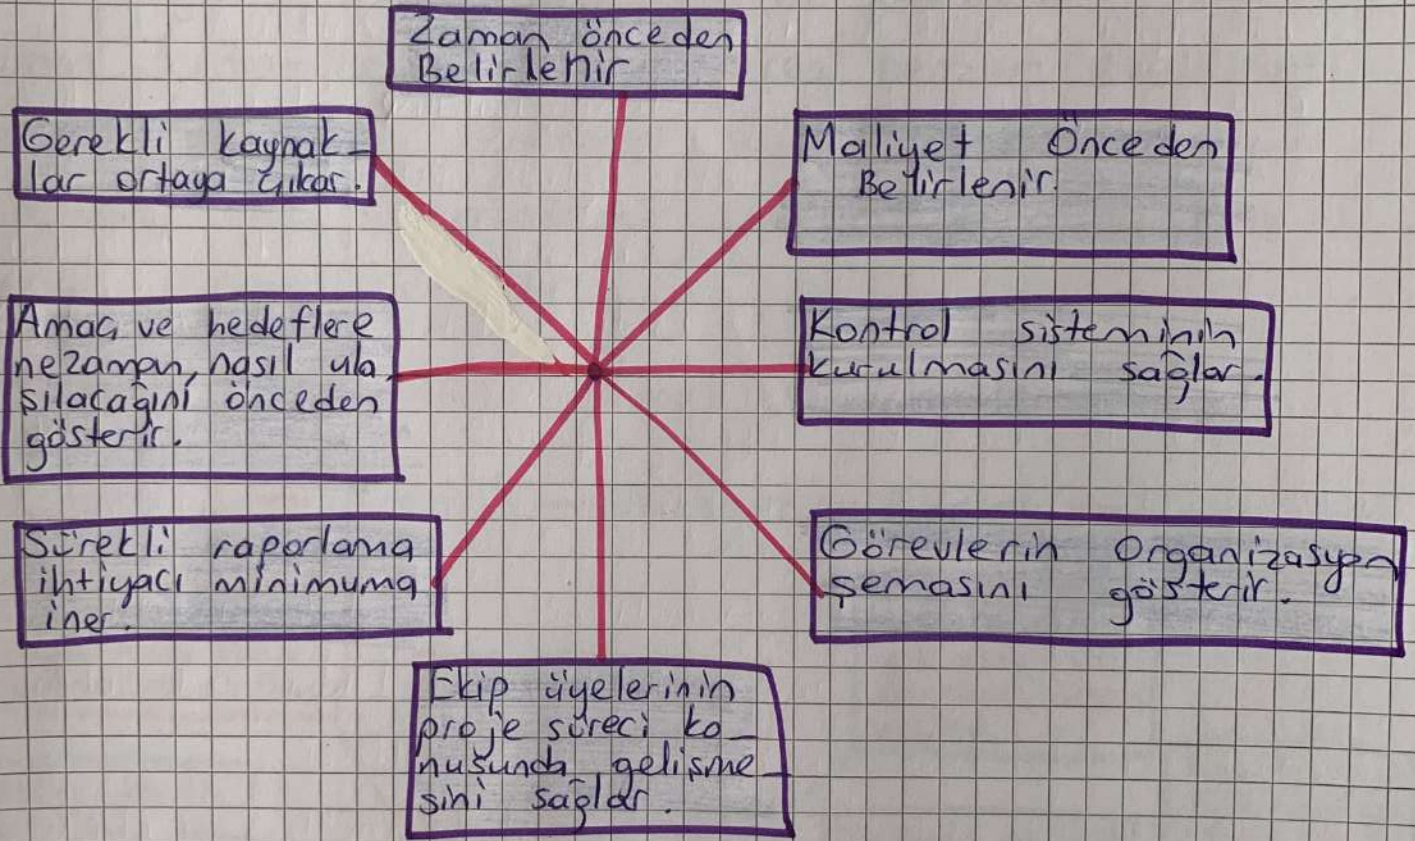 Zaman önceden
Belirlenir
Gerekli kaynak-
lar ortaya çıkar.
Maliyet Önceden
Belirlenir.
Amaç ve hedeflere
nezaman, nasıl ula
şılacağını önceden
gösterir.
Kontrol sisteminin
kurulmasını sağlar.
Sürekli raporlama
ihtiyacı minimuma
iner.
Görevlerin Organizasyon
şemasını gösterir.
Ekip üyelerinin
proje süreci ko-
nusunda gelişme-
sini sağlar.